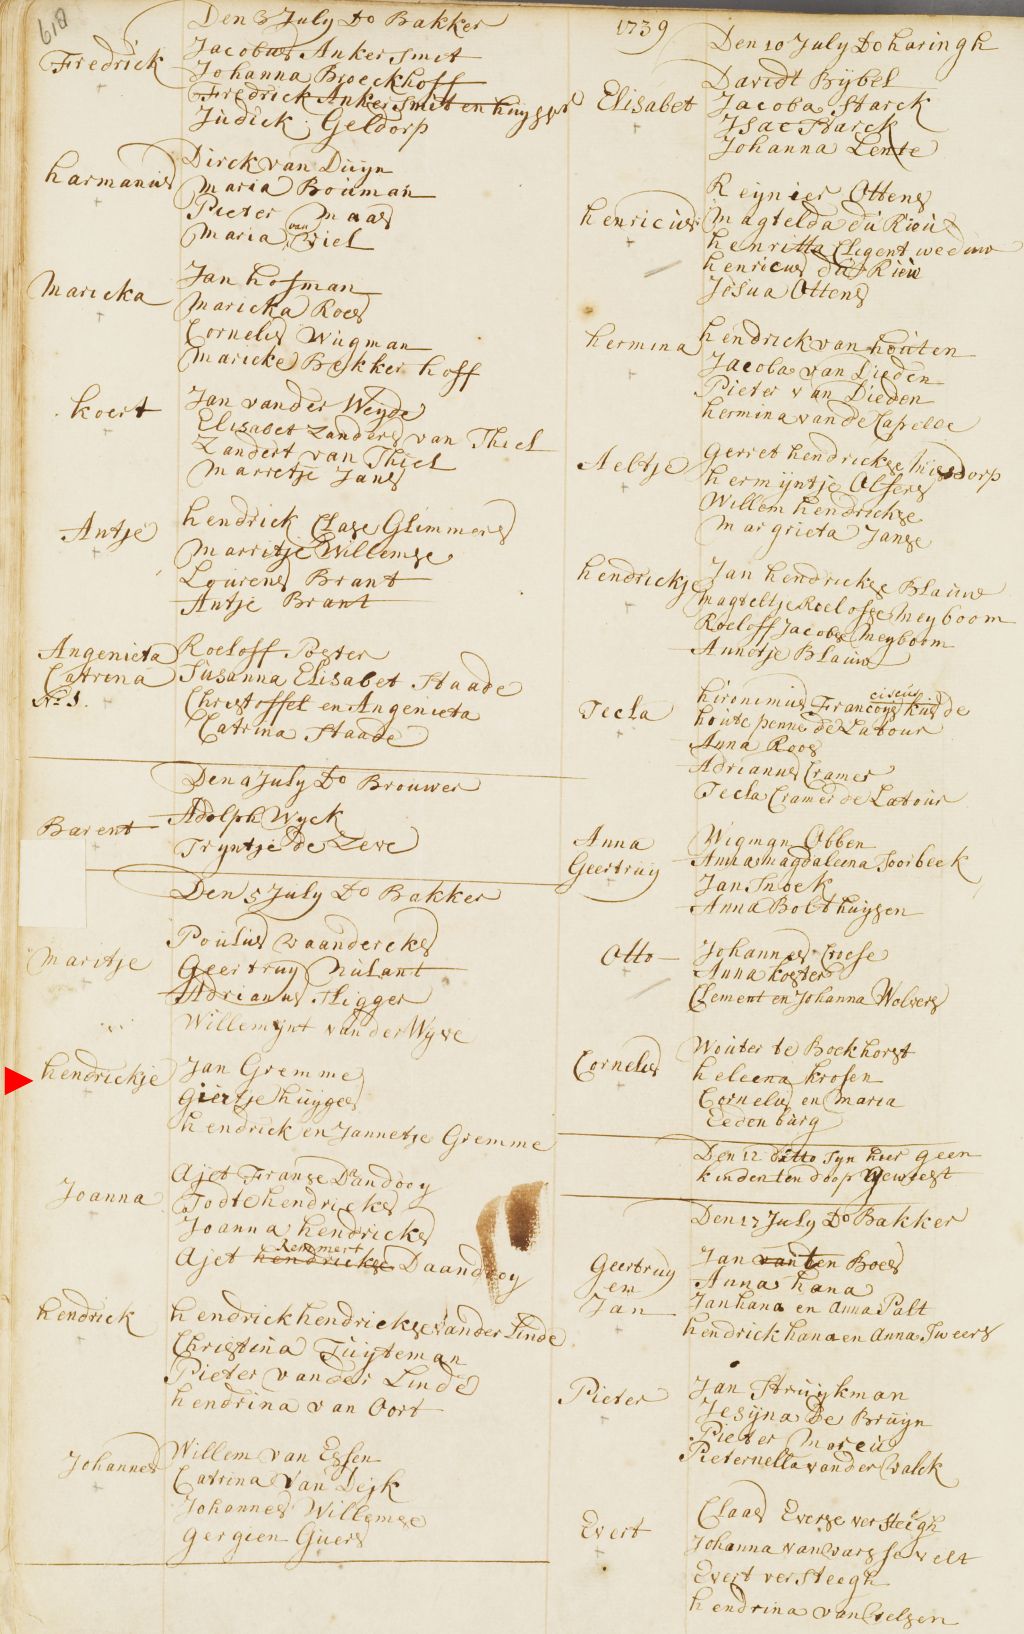 618
Den 3 July Do Bakker
Fredrick
Jacobus Anker Smit
Johanna Broeckhoff
Fredrick Anker Smitt en huysvr
Judick Geldorp
harmanus
Dirck van Duyn
Maria Bouman
Pieter Maas
Maria van Viel
Maricka
Jan hofman
Maricka Roes
Cornelis Wugman
Maricke Bekker hoff
koert
Jan vander Weyde
Elisabet Zanders van Thiel
Zandert van Thiel
Marretje Jans
Antje
hendrick Clase Glimmers
Marritje Willemse
Lourens Brant
Antje Brant
Angenieta
Catrina
No 1.
Roeloff Poster
Susanna Elisabet Staade
Christoffel en Angenieta
Catrina Staade
Den 4 July Do Brouwer
Barent
Adolph Wyck
Tryntje de Zeve
Den 5 July Do Bakker
Maritje
Poulus Waandercks
Geertruy Nulant
Adrianus Fligger
Willemynt van der Wyve
hendrickje
Jan Gremme
Giertje huyges
hendrick en Jannetje Gremme
Joanna
Ajet Franse Dandooy
Jodte hendricks
Joanna hendricks
Ajet hendrickse Remmert Daandooy
hendrick
hendrick hendrickse vander Linde
Christina Tuyteman
Pieter vander Linde
hendrina van Oort
Johannes
Willem van Essen
Catrina van Dejk
Johannes Willemse
Gergien Guers
1739
Den 10 July Do haringh
Elisabet
Davidt Bybel
Jacoba Starck
Isac Starck
Johanna Lente
henricus
Reynier Ottens
Magtelda du Rieu
henritta Clegent weeduw
henricus du Rieu
Josua Ottens
hermina
hendrick van houten
Jacoba van Dieden
Pieter van Dieden
hermina van de Capelle
Aeltje
Gerret hendrickse Nigsdorp
hermyntje Olfers
Willem hendrickse
Margrieta Janse
hendrickje
Jan hendrickse Blauw
Magteltje Roelofse Meyboom
Roeloff Jacobs Meyboom
Annetje Blauw
Tecla
hironimus Francoys ciscus kus de
houte penne de Latour
Anna Roos
Adrianus Cramer
Tecla Cramer de Latour
Anna
Geertruy
Wigman Obben
Anna Magdaleena Soorbeek
Jan Snoek
Anna Bolthuysen
Otto
Johannes Croese
Anna koster
Clement en Johanna Wolvers
Cornelis
Wouter te Bockhorst
heleena krosen
Cornelis en Maria
Eedenburg
Den 12 ditto syn hier geen
kinden ten doop geweest
Den 17 July Do Bakker
Geertruy
en
Jan
Jan van ten Boes
Anna hana
Jan hana en Anna Palt
hendrick hana en Anna Tweers
Pieter
Jan Struykman
Jesyna De Bruyn
Pieter Moreu
Pieternella vander Walck
Evert
Claas Everse versteegh
Johanna van varssevelt
Evert versteegh
hendrina van Velsen